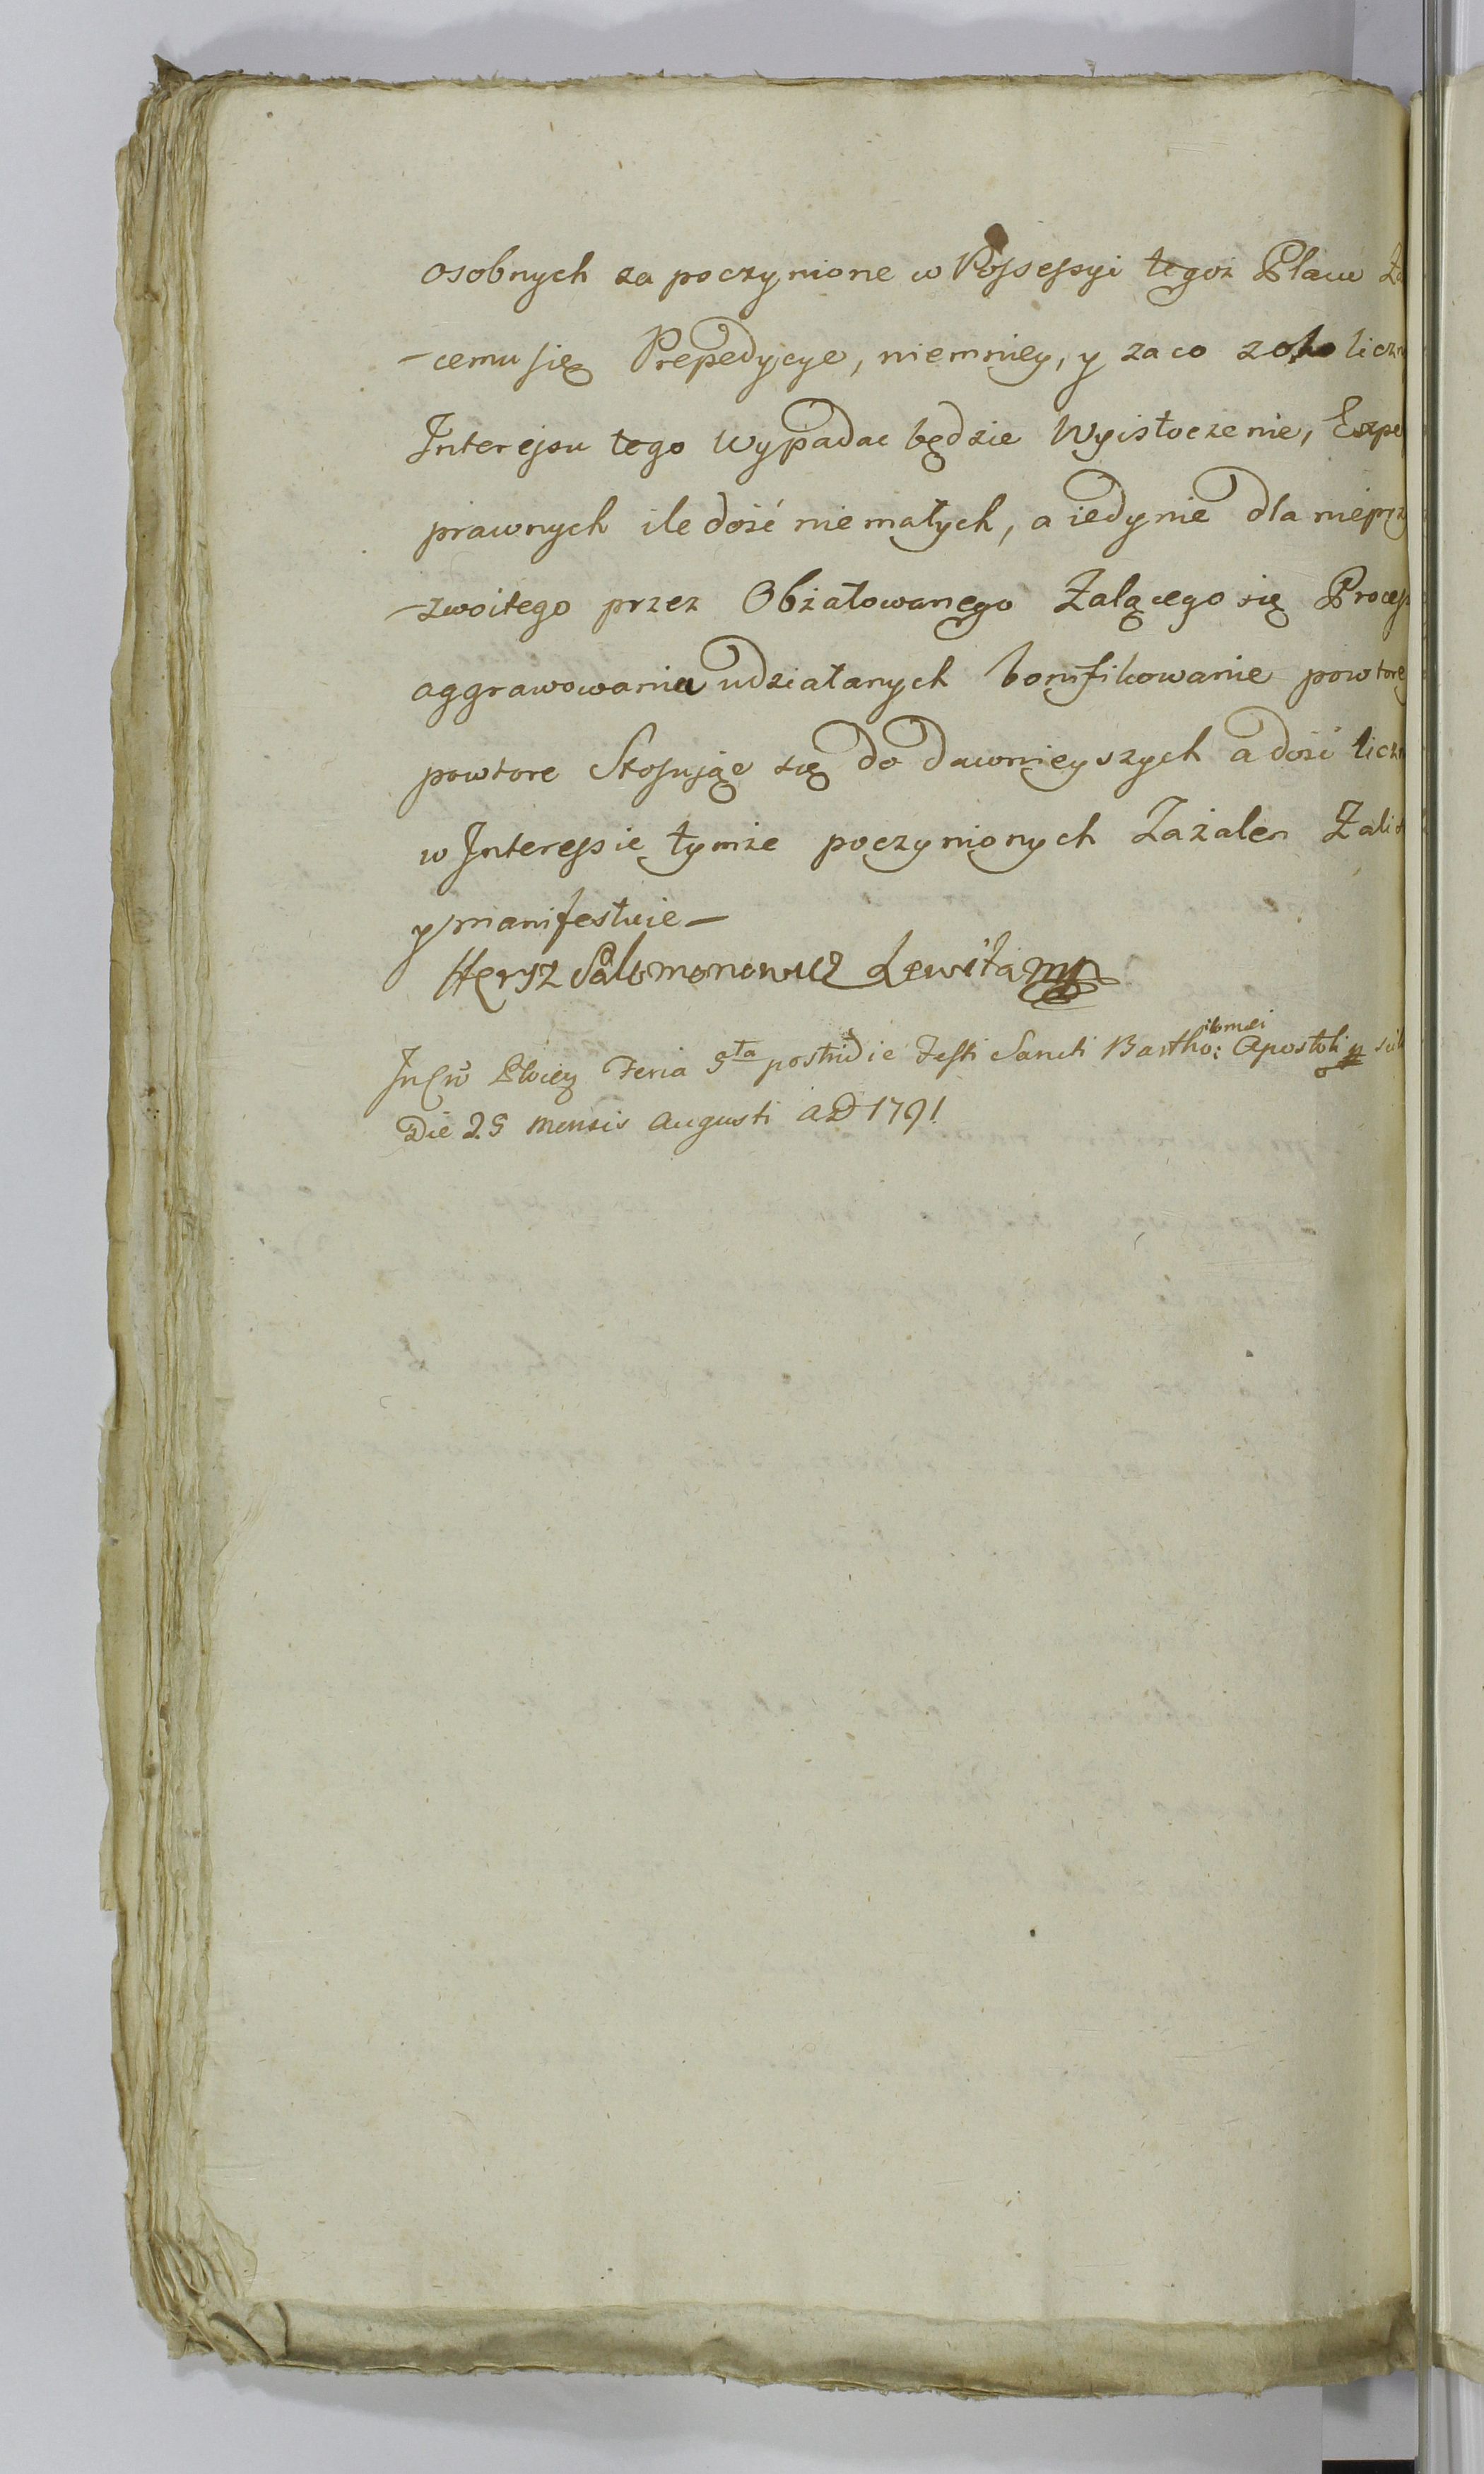 osobnych za poczynione w Possessyi tegoż Placu
-cemu się Prepedycye, niemniey, y za co
Interessu tego wypadac będzie Wyistoczenie, Expe
prawnych ile dość niemałych, a iedynie dla nieprzy
-zwoitego przez Obżałowanego Żalącego się Process
aggrawowania udziałanych bonifikowanie powtore
powtore Stosując się do dawnieyszych a dość liczn
w Interessie tymże poczynionych Zażalen Żali
y manifestuie —
Hersz Salomonowicz Lewita mp
Feria 5ta postridie Festi Sancti Bartho: ilomei Apostoli
Die 25 Mensis Augusti AD 1791